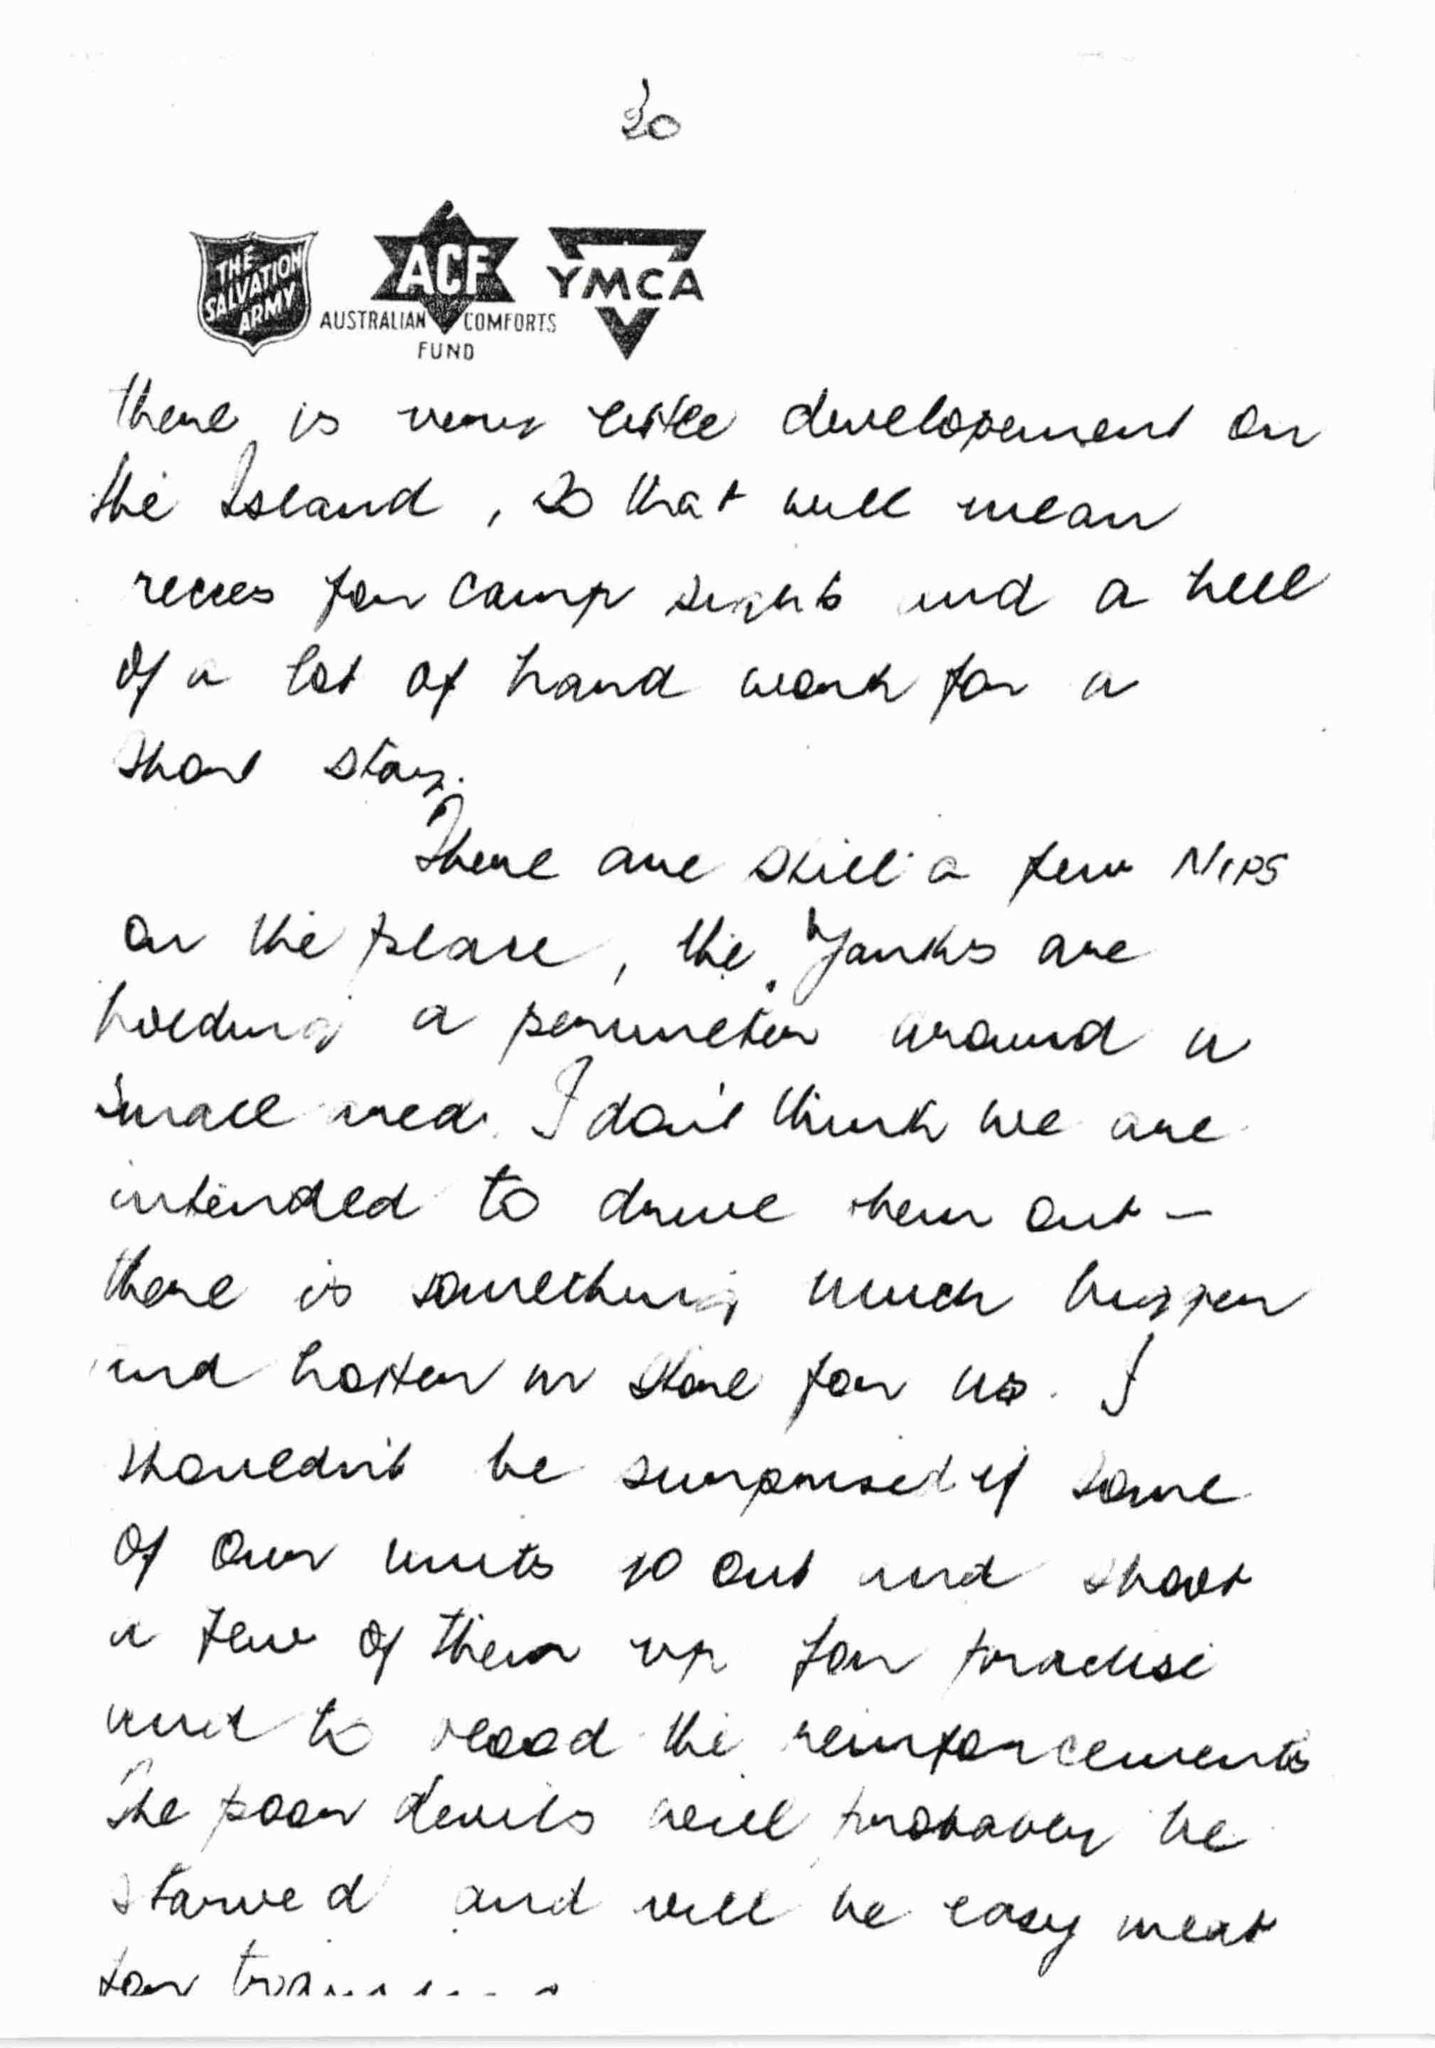 20
THE SALVATION ARMY
ACF
AUSTRALIAN COMFORTS FUND
YMCA
there is very little developement on
the Island, so that will mean
recces for camp sights and a hell
of a lot of hard work for a
short stay.
There are still a few NIPS
on the place, the Yanks are
holding a perimeter around a
small area. I don't think we are
intended to drive them out –
there is something much bigger
and hotter in store for us. I
shouldn't be surprised if some
of our units go out and shoot
a few of them up for practise
and to blood the reinforcements
The poor devils will probably be
starved and will be easy meat
for